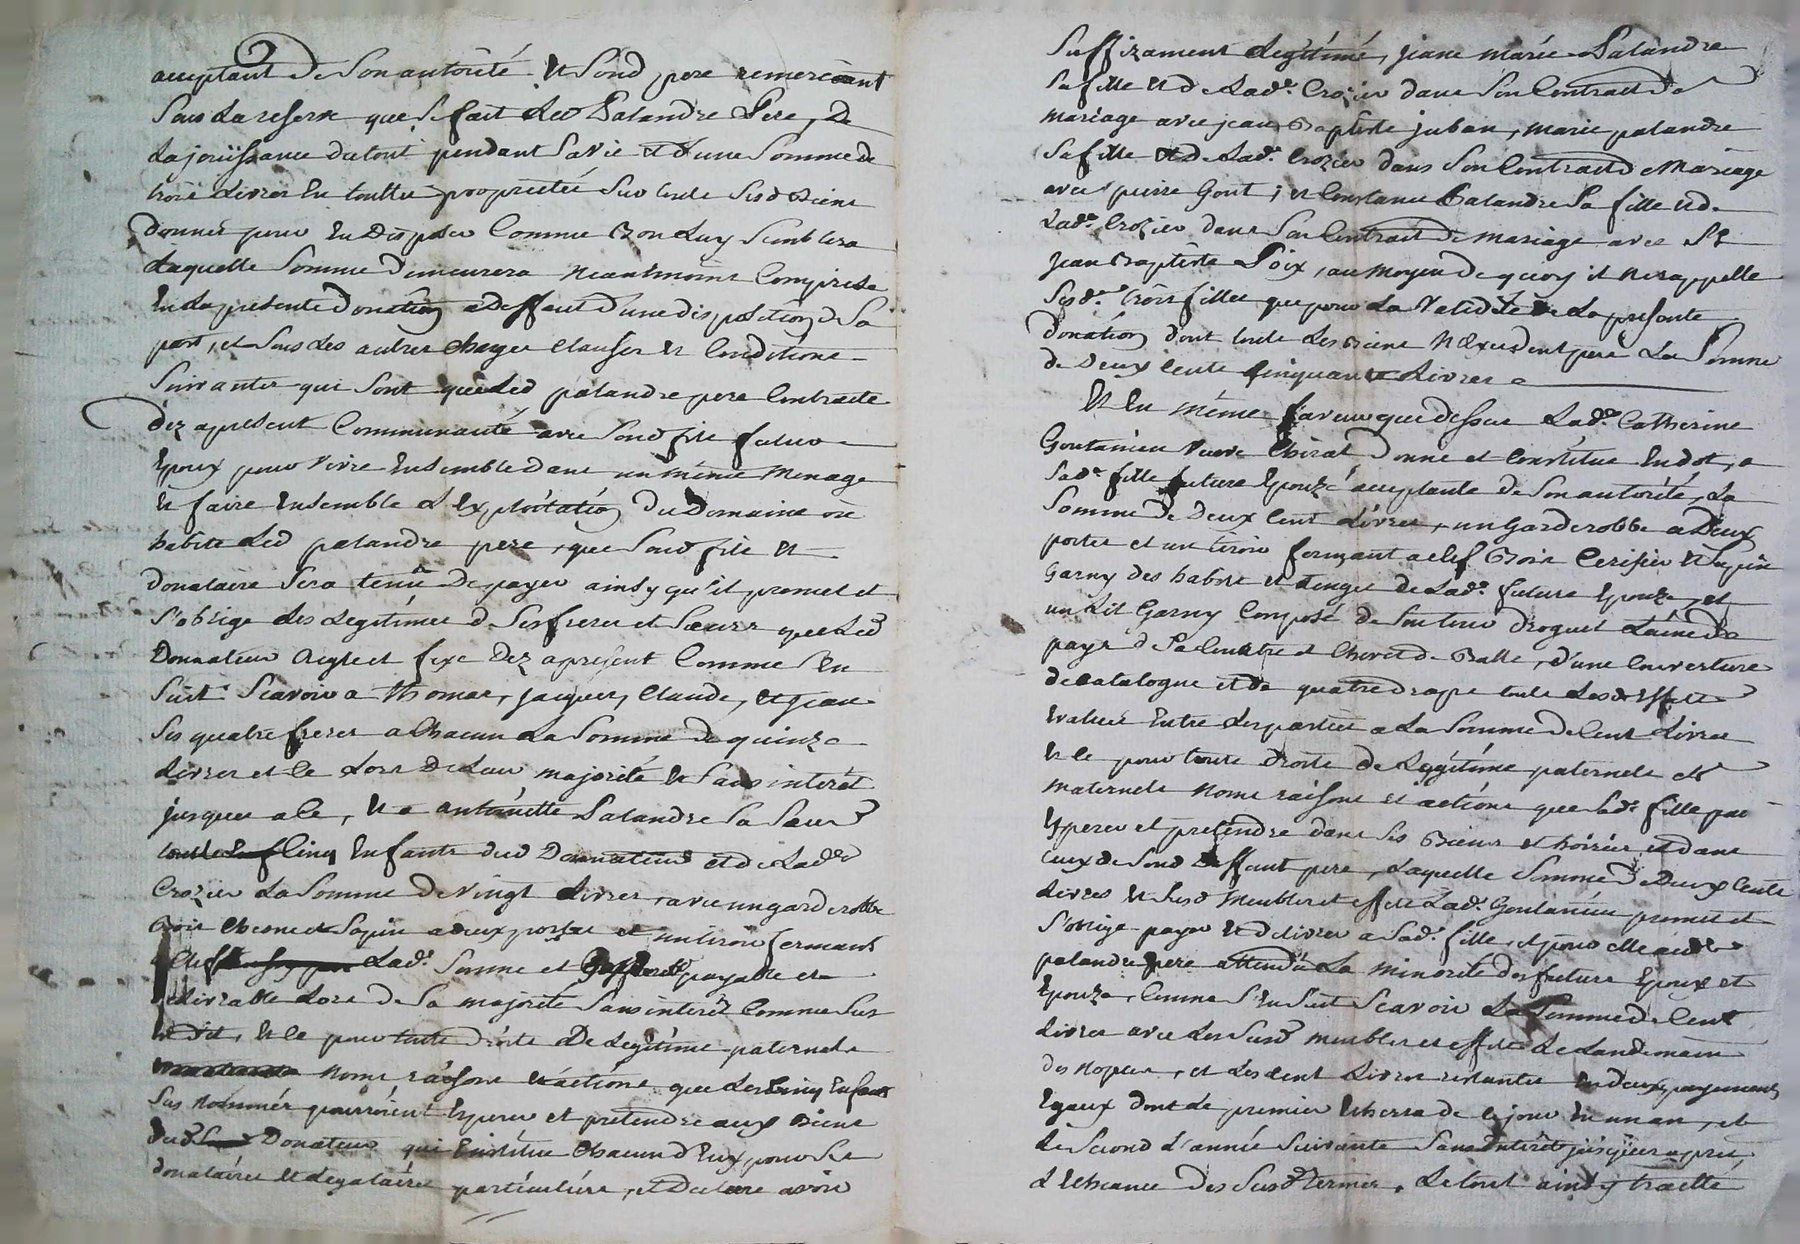 acceptant de Son autorité et Sond pere remerciant
Sous La reserve que Se fait Led Palandre Pere, De
La jouissance du tout pendant Sa vie et d'une Somme de
trois Livres En toutte proprietée Sur touts Sesd Biens
donnés pour En Disposer Comme Bon Luy Semblera
Laquelle Somme demeurera Neantmoins Comprise
En La presente Donation a Deffaut d'une disposition de Sa
part, et Sous Les autres Charges Clauses et Conditions
Suivantes qui Sont que Led palandre pere Contracte
déz apresent Communauté avec Sond fils futur
Epoux pour vivre Ensemble dans un même Menage
et faire Ensemble L'Exploitation Du Domaine ou
habite Led palandre pere, que Sond fils et
donataire Sera tenu De payer ainsy qu'il promet et
S'oblige Les Legitimes de Ses freres et Sœurs que Led
Donnateur Regle et fixe Dez apresent Comme S'en
Suit Scavoir a Thomas, jacques, Claude, et jean
Ses quatre freres a Chacun La Somme de quinze
Livres et ce Lors De Leur majorité et Sans interêt
jusques a Ce, et a antoinette Palandre Sa Sœur
Cinq Enfants dud Donnateur et de Lad.
Crozier La Somme de vingt Livres, avec un garderobbe
Bois Chesne et Sapin a deux portes et un tiroir fermant
a Clef Lad. Somme et payable et
delivrable Lors de Sa majorité Sans interêt Comme Sus
est dit, et ce pour touts Droits De Legitime paternels
Noms raisons et actions que Les Cinq Enfants
Sus Nommés pourroient Esperer et pretendre aux Biens
dud Donateur qui Institue Chacun d'Eux pour Ses
donataires et Legataires particuliers, et Declare avoir
Suffizament Legitimé, jeane marie Palandre
Sa fille et de Lad. Crozier dans Son Contract de
mariage avec jean Baptiste juban, marie palandre
Sa fille et de Lad. Crozier dans Son Contract de Mariage
avec pierre Gout; et Constance Palandre Sa fille et de
Lad. Crozier dans Son Contract de mariage avec Sr
jean Baptiste Poix, au moyen de quoy il ne rappelle
Sesd. trois filles que pour La Validité de La presente
donation dont touts Les Biens N'Excedent pas La Somme
de Deux Cents Cinquante Livres
Et En même faveur que dessus Lad. Catherine
Goutanieu Veuve Chirat Donne et Constitue En dot, a
Sad. fille future Epouze acceptante de Son autorité, La
Somme De Deux Cent Livres, un garderobbe a Deux
portes et un tiroir fermant a clef Bois Cerisier et Sapin
Garny des habits et Linges de Lad. future Epouze, et
un Lit Garny Composé de Son tour droguet Laine du
pays de Sa Couetre et Chevet de Balle, d'une Couverture
de Catalogne et de quatre draps touts Lesd Effets
Evalués Entre Les parties a La Somme de Cent Livres
et ce pour touts Droits de Legitime paternels et
maternels Noms raisons et actions que Sad. fille peut
Esperer et pretendre dans Ses Biens et hoiries et dans
Ceux de Sond Deffunt pere, Laquelle Somme de Deux Cents
Livres et Susd Meubles et effets Lad. Goutanieu promet et
S'oblige payer et Delivrer a Sad. fille, et pour elle aud
palandre pere attendu La Minorité des futurs Epoux et
Epouze, Comme S'en Suit Scavoir La Somme de Cent
Livres avec Les Susd meubles et effets Le Landemain
des Nopces, et Les Cent Livres restantes En deux payements
Egaux dont Le premier Echerra de ce jour En un an, et
Le Second L'année Suivante Sans Interêt jusques apres
L'Echeance Des Susd termes. Le tout ainsy traitté